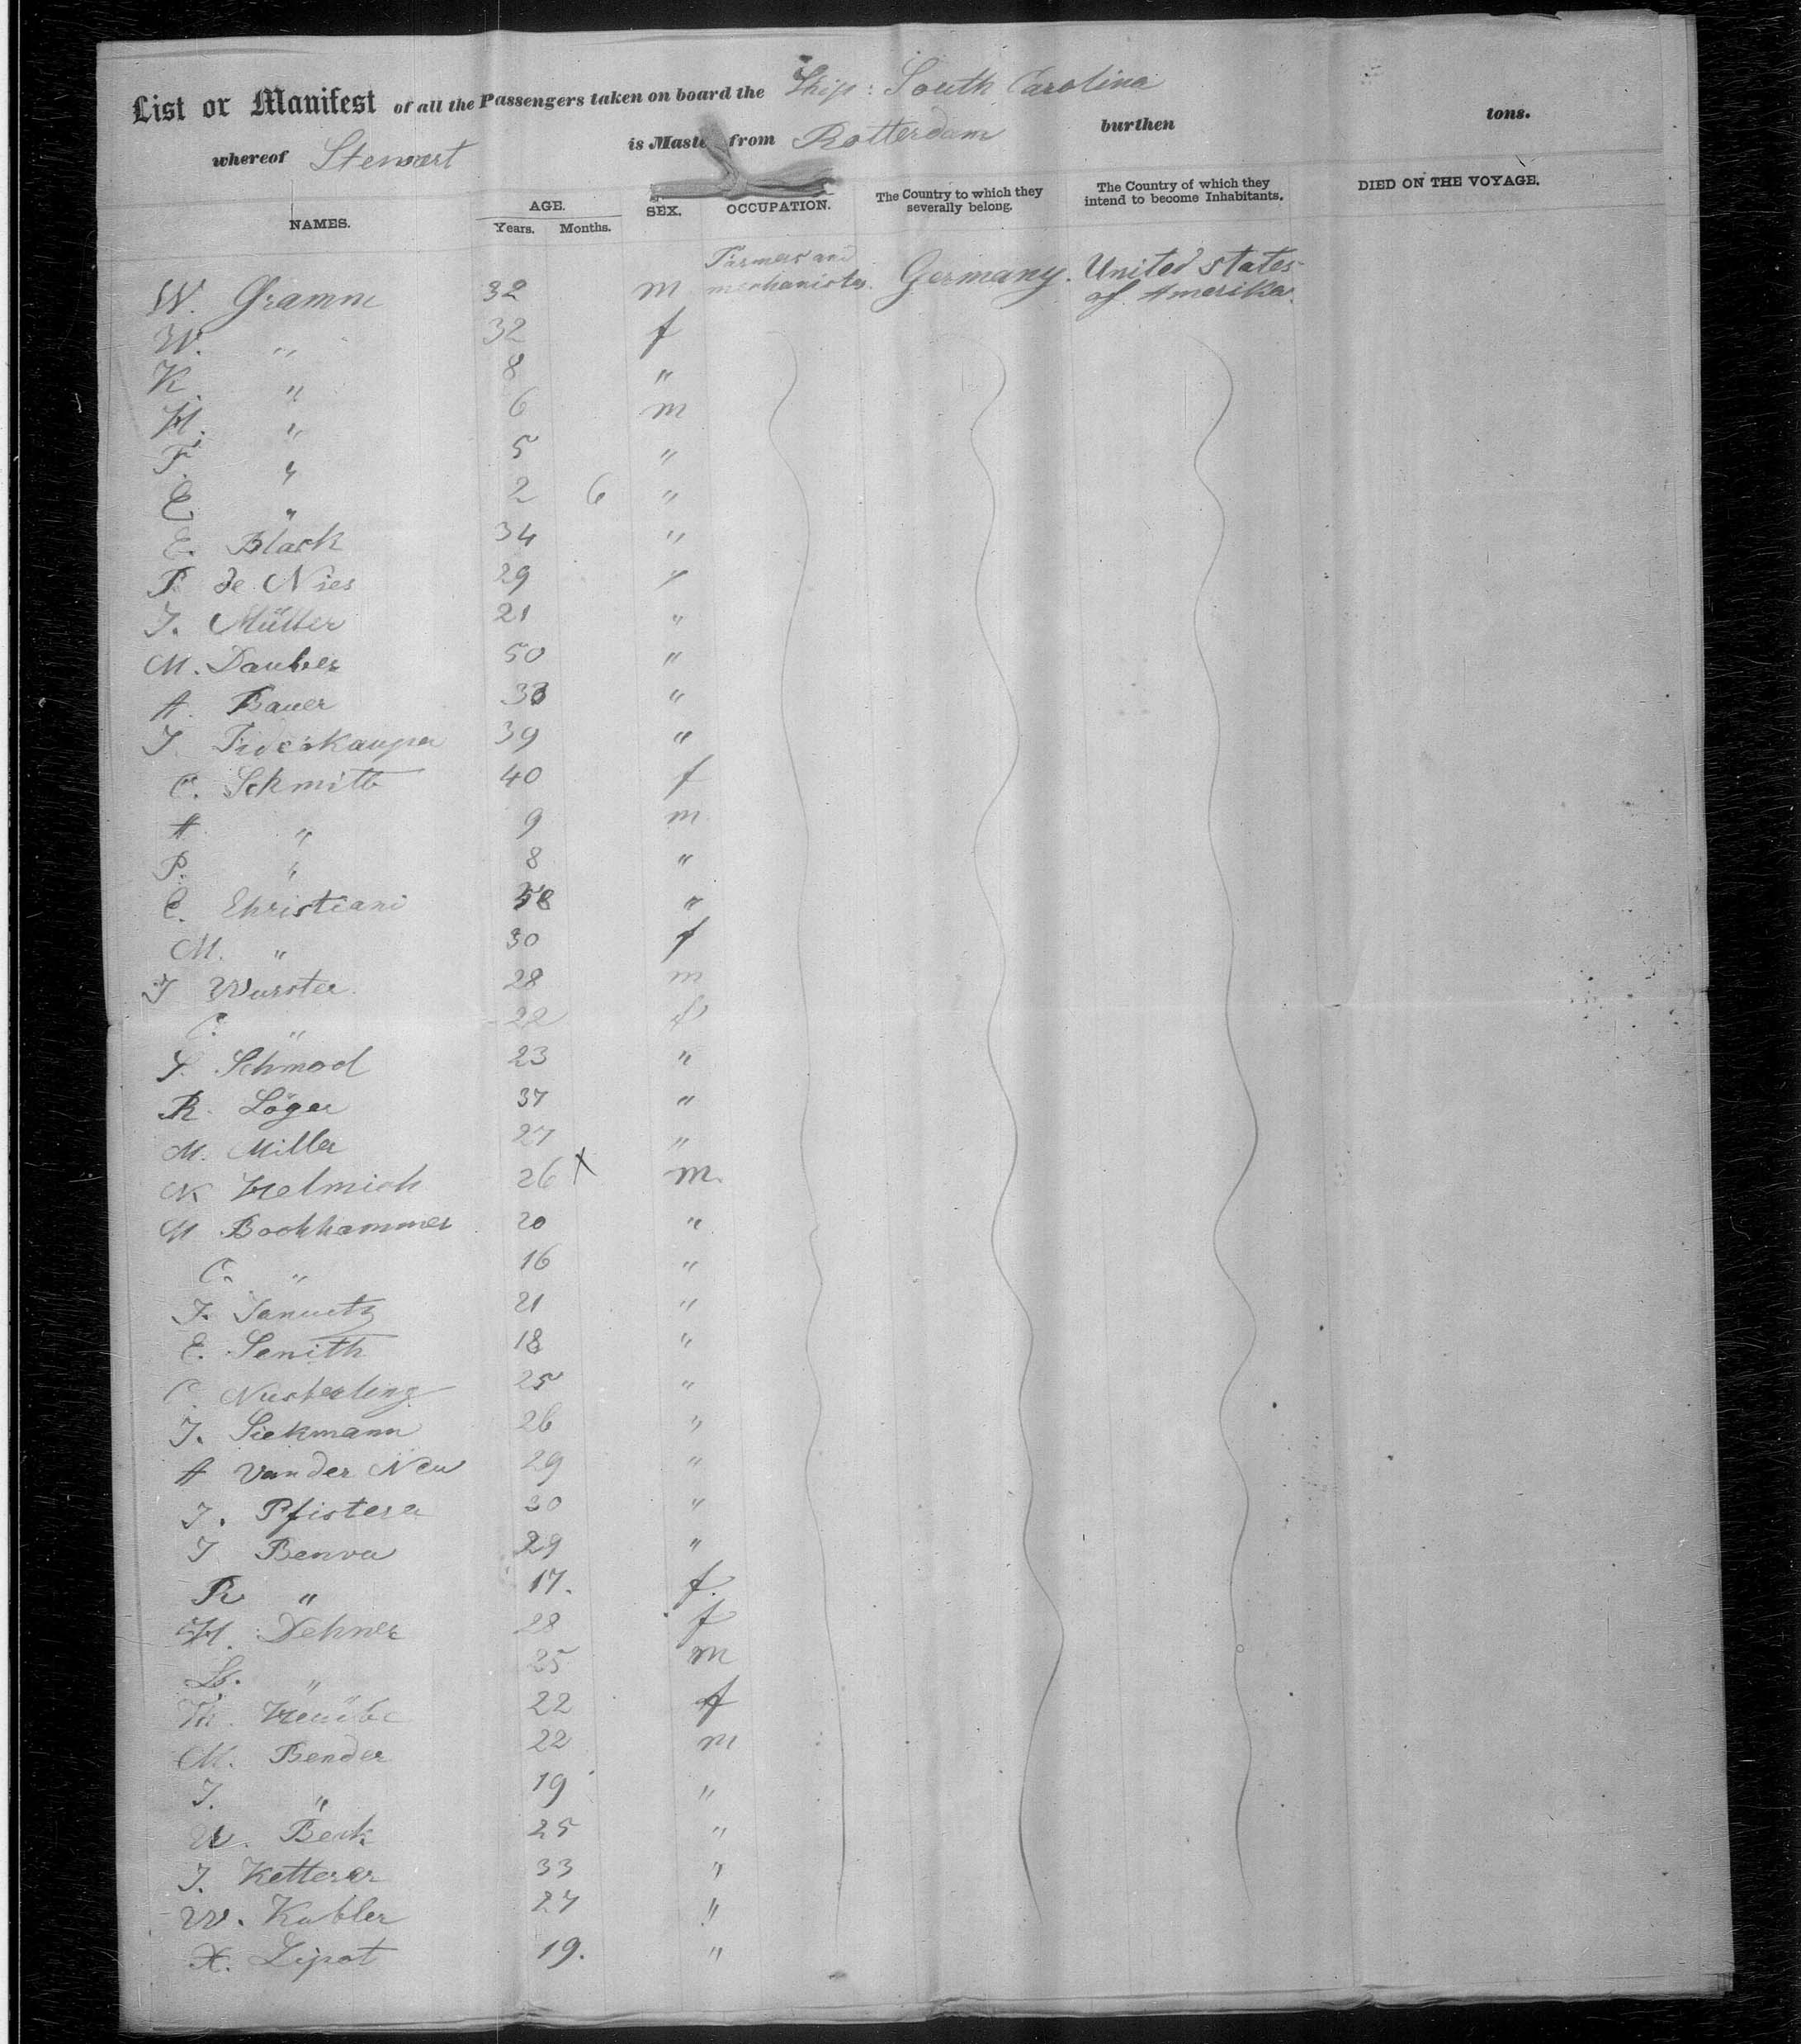 List or Manifest of all the Passengers taken on board the Ship: South Carolina
whereof Stewart is Master from Rotterdam burthen tons.
NAMES. AGE. Years. Months. SEX. OCCUPATION. The Country to which they severally belong. The Country of which they intend to become Inhabitants. DIED ON THE VOYAGE.
W. Gramm 32 m Farmers and mechanistes. Germany. United States of Amerika.
W. " 32 f
K. " 8 "
H. " 6 m
F. " 5 "
E. " 2 6 "
E. Black 34 "
P. de Nies 29 "
J. Müller 21 "
M. Dauber 50 "
A. Bauer 33 "
J. 39 "
C. Schmitt 40 f
A. " 9 m
P. " 8 "
C. Christiani 58 "
M. " 30 f
J Wurster 28 m
C. " 22 f
S. Schmod 23 "
R. Löger 37 "
M. Miller 27 "
N Helmich 26 X m.
M Bochhammer 20 "
C. " 16 "
J. 21 "
E. Senith 18 "
C. Nusterling 25 "
J. Siekmann 26 "
A Van der Neu 29 "
J. Pfisterer 30 "
J Benva 29 "
R " 17. f.
H. Dehner 28 f
L. " 25 m
22 f
M. Bender 22 m
J. " 19 "
W. Beck 25 "
J. Ketterer 33 "
W. Kubler 27 "
X. Lipot 19. "